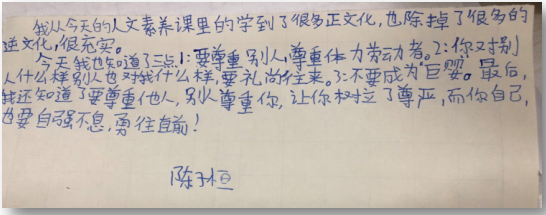 我从今天的人文素养课里的学到了很多正文化,也除掉了很多的
逆文化,很充实。
今天我也知道了三点1:要尊重别人,尊重体力劳动者。2:你对别
人什么样别人也对我什么样,要礼尚往来。3:不要成为"巨婴"。最后,
我还知道了要尊重他人,别人尊重你,让你树立了尊严,而你自己,
也要自强不息,勇往直前!
陈子桓